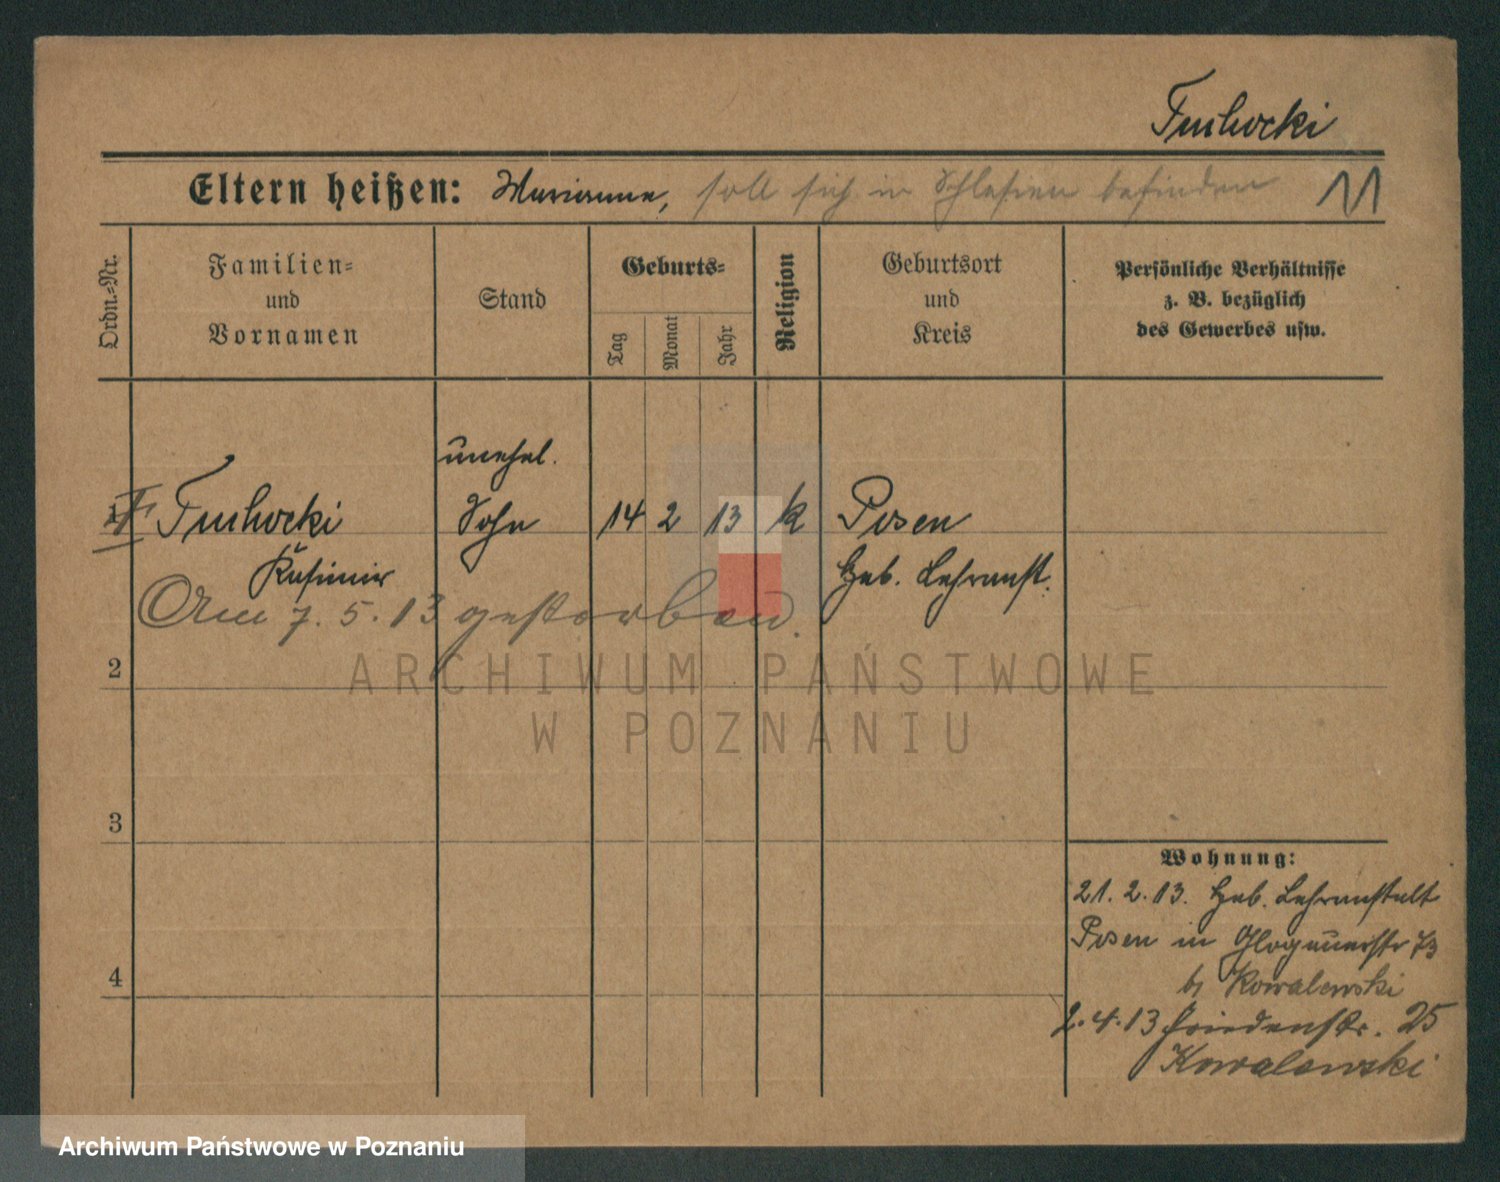 Tuchocki
Eltern heißen: Marianne, soll sich in Schlesien befinden 11
Ordn.-Nr.
Familien-
und
Vornamen
Stand
Geburts-
Tag
Monat
Jahr
Religion
Geburtsort
und
Kreis
Persönliche Verhältnisse
z. B. bezüglich
des Gewerbes usw.
unehel.
Tuchocki Sohn 14 2 13 k Posen
Kasimir Heb. Lehranst.
Am 7. 5. 13 gestorben.
2
3
4
Wohnung:
21. 2. 13. Heb. Lehranstalt
Posen in Glogauerstr 73
b Kowalewski
2. 4. 13 Friedenstr. 25
Kowalewski
ARCHIWUM PAŃSTWOWE
W POZNANIU
Archiwum Państwowe w Poznaniu